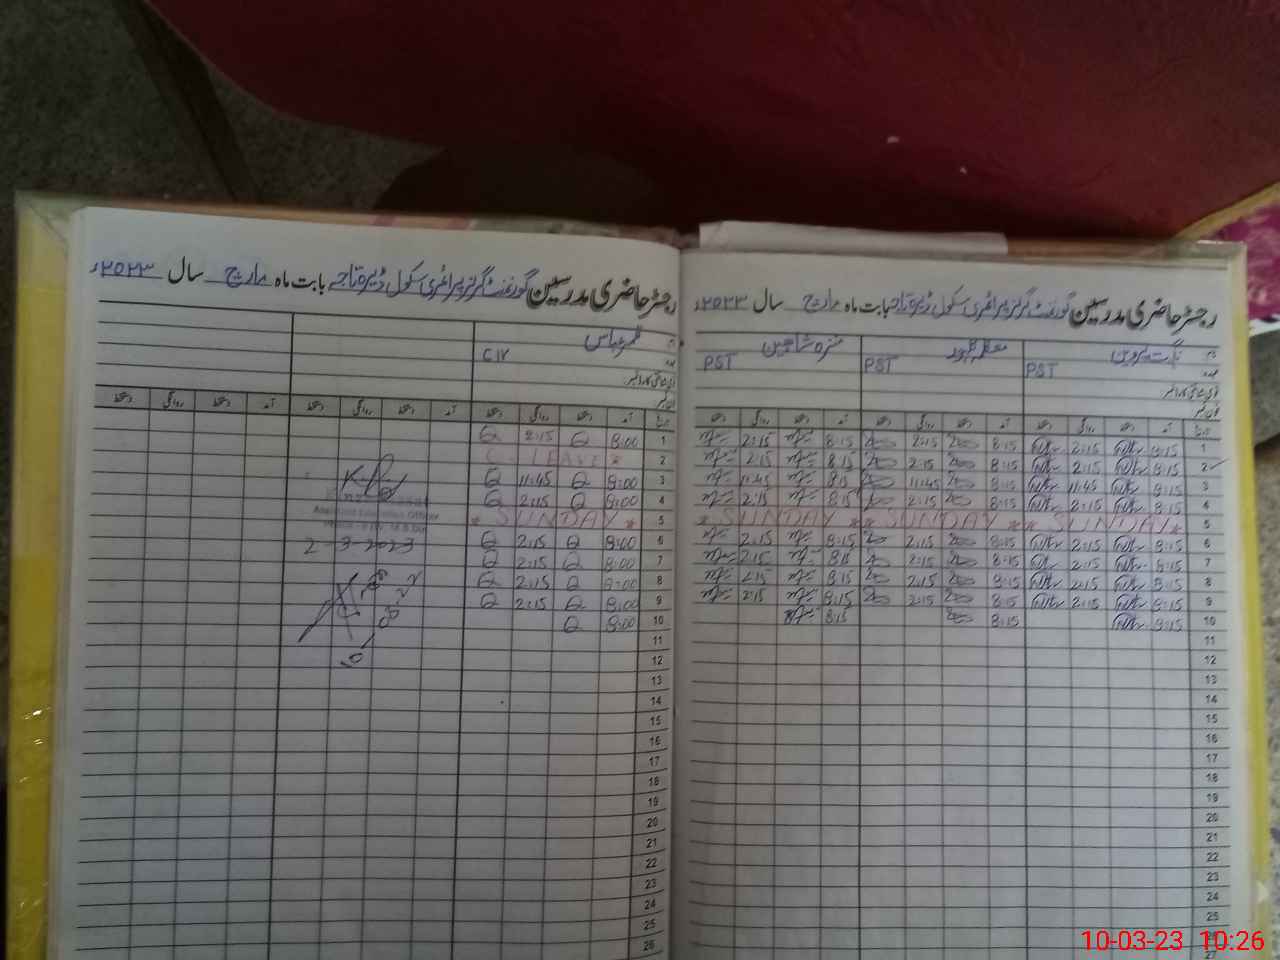 رجسٹر حاضری مدرسین گورنمنٹ گرلز پرائمری سکول ڈیرہ تاجہ بابت ماہ مارچ سال ۲۰۲۳ء
نگہت پروین
PST PST PST
تاریخ آمد دستخط روانگی دستخط آمد دستخط روانگی دستخط آمد دستخط روانگی دستخط
1 8:15 2:15 8:15 2:15 8:15 2:15
2 8:15 2:15 8:15 2:15 8:15 2:15
3 8:15 11:45 8:15 11:45 8:15 11:45
4 8:15 2:15 8:15 2:15 8:15 2:15
5 * SUNDAY * * SUNDAY * * SUNDAY *
6 8:15 2:15 8:15 2:15 8:15 2:15
7 8:15 2:15 8:15 2:15 8:15 2:15
8 8:15 2:15 8:15 2:15 8:15 2:15
9 8:15 2:15 8:15 2:15 8:15 2:15
10 8:15 8:15 8:15
11
12
13
14
15
16
17
18
19
20
21
22
23
24
25
26
27
رجسٹر حاضری مدرسین گورنمنٹ گرلز پرائمری سکول ڈیرہ تاجہ بابت ماہ مارچ سال ۲۰۲۳ء
قمر عباس
C IV
تاریخ آمد دستخط روانگی دستخط آمد دستخط روانگی دستخط آمد دستخط روانگی دستخط
1 8:00 2:15
2 C LEAVE *
3 8:00 11:45
4 8:00 2:15
5 * SUNDAY *
6 8:00 2:15
7 8:00 2:15
8 8:00 2:15
9 8:00 2:15
10 8:00
11
12
13
14
15
16
17
18
19
20
21
22
23
24
25
26
Assistant Education Officer
2-3-2023
10-03-23 10:26